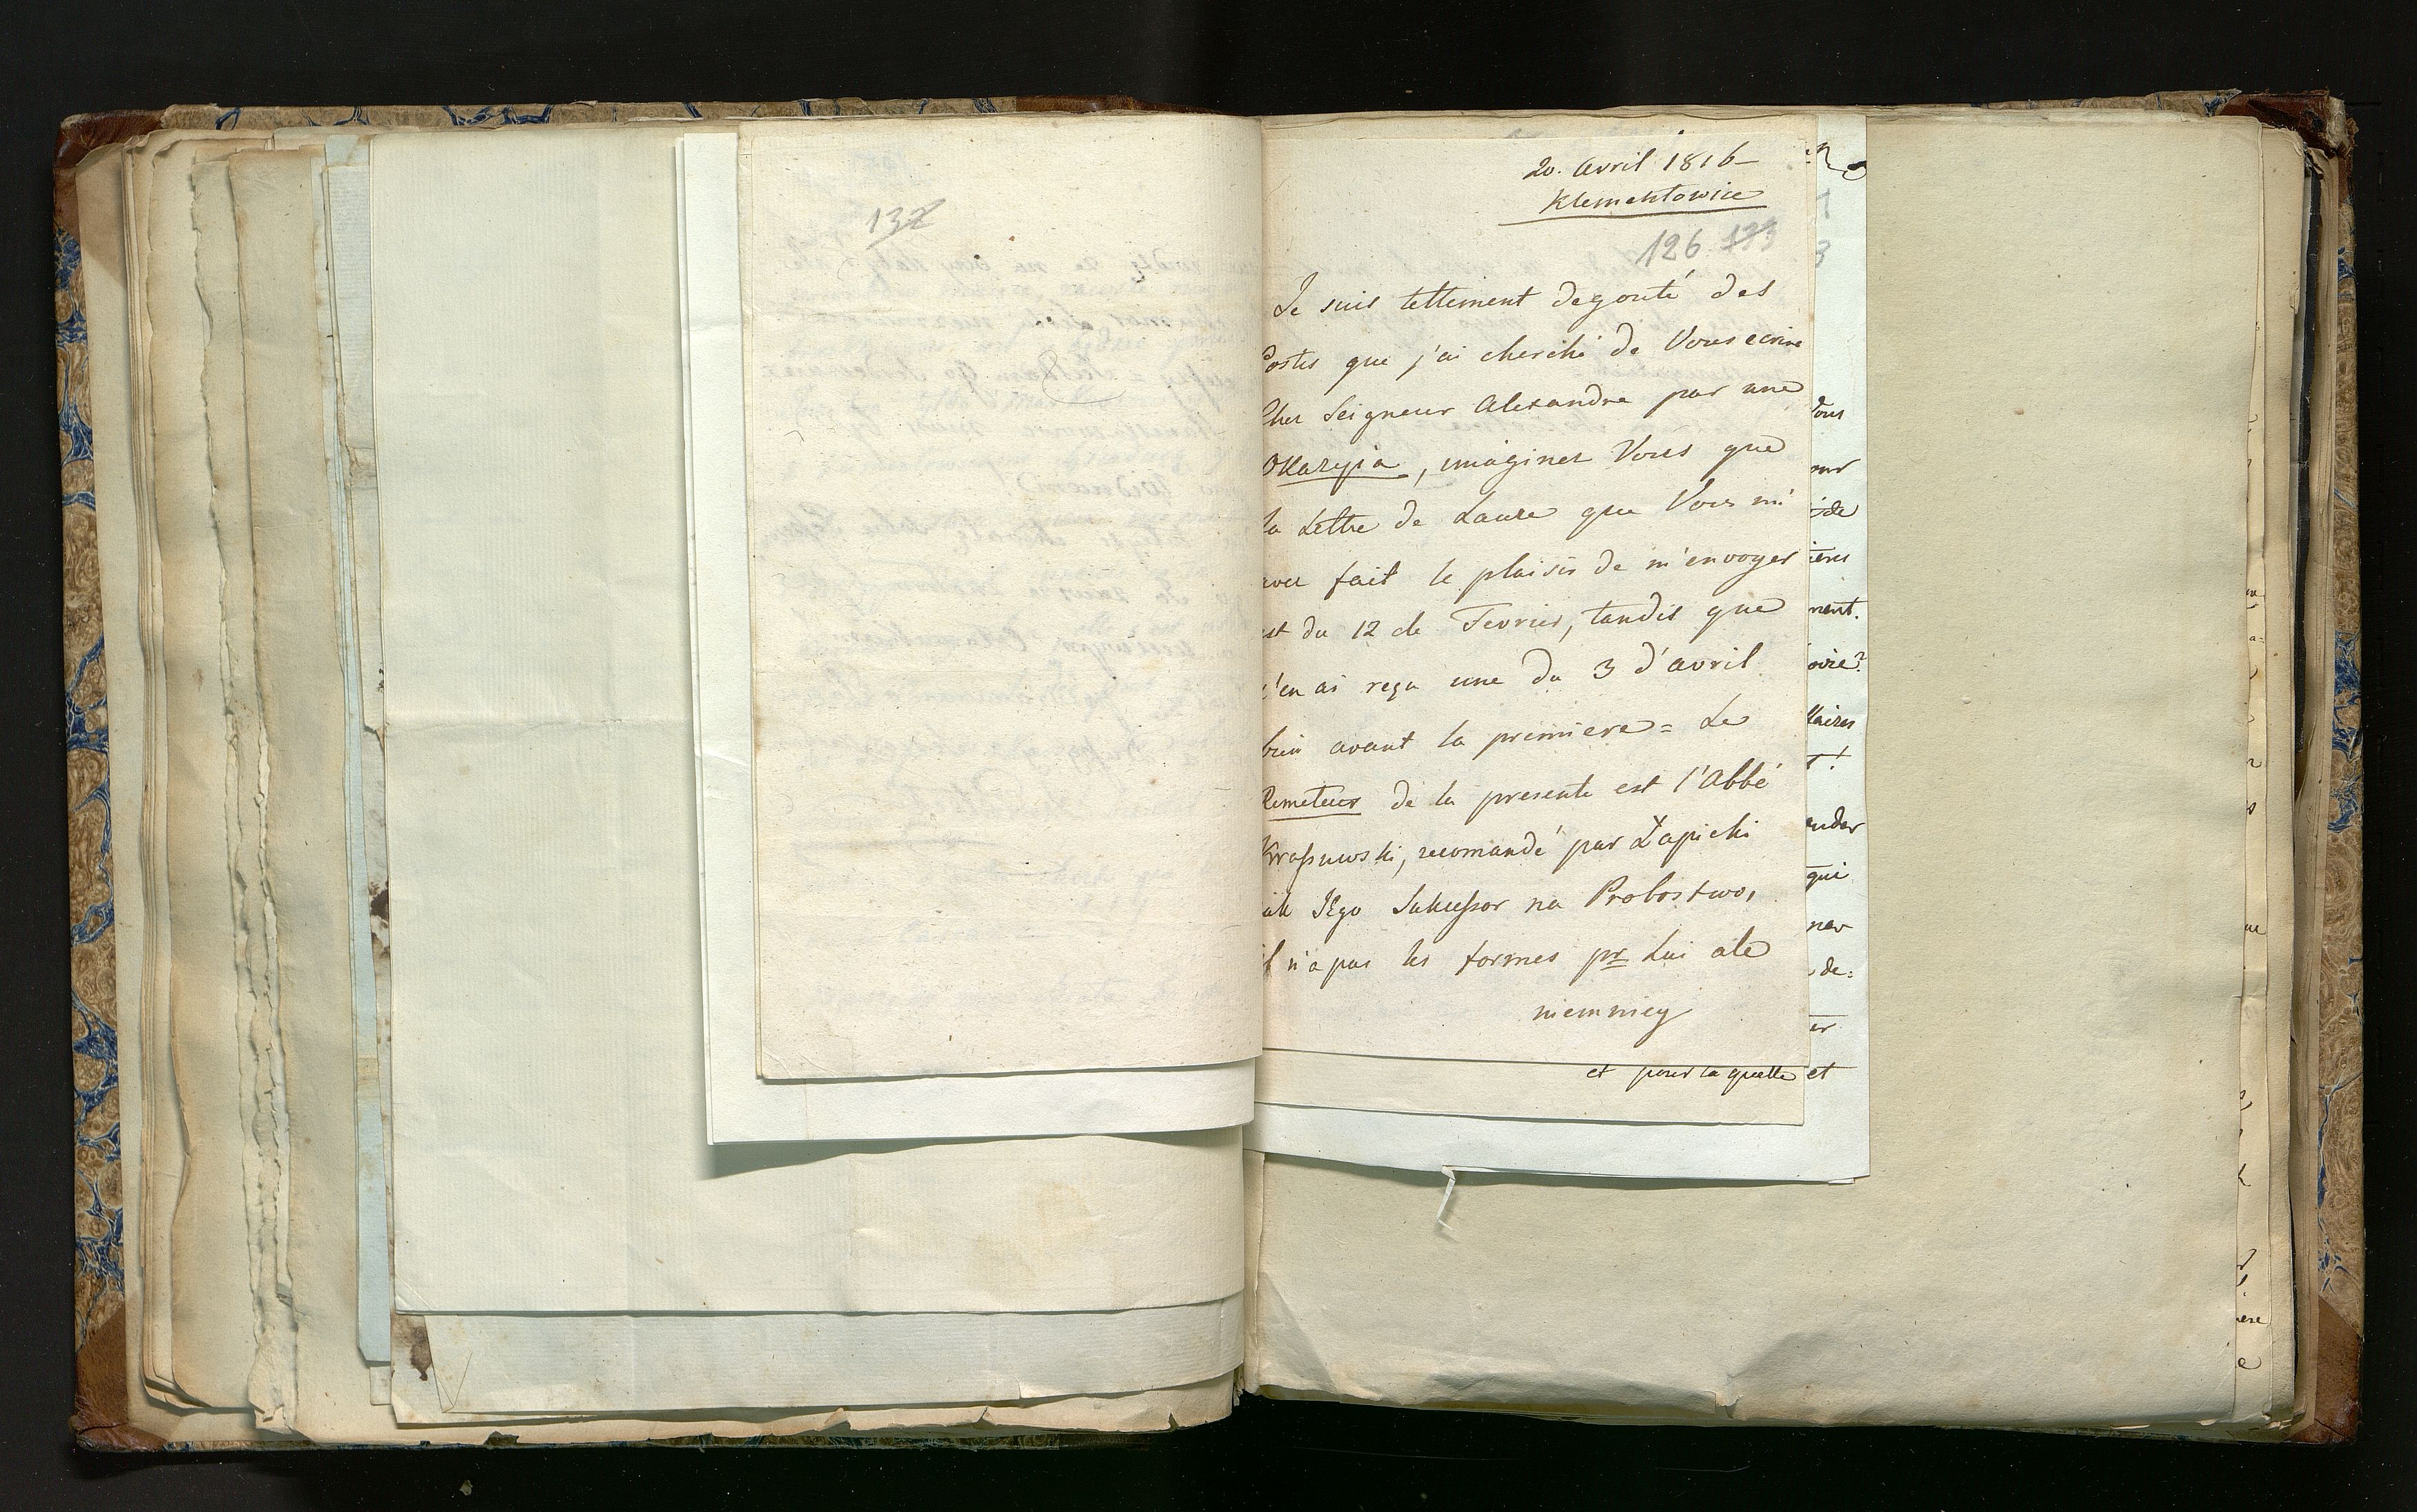 132
20. Avril 1816 —
Klementowice
126 133
Je suis tellement degouté des
Postes que j'ai cherché de Vous ecrire
Cher Seigneur Alexandre par une
Okazyia, imaginez Vous que
la Lettre de Laure que Vous m'
avez fait le plaisir de m'envoyer
est du 12 de Fevrier, tandis que
j'en ai reçu une du 3 d'avril
bien avant la premiere = Le
Remeteur de la presente est l'Abbé
recomandé par Łapicki
iak Jego Sukcessor na Probostwo,
il n'a pas les formes pr Lui ale
niemniey
et pour la quelle et